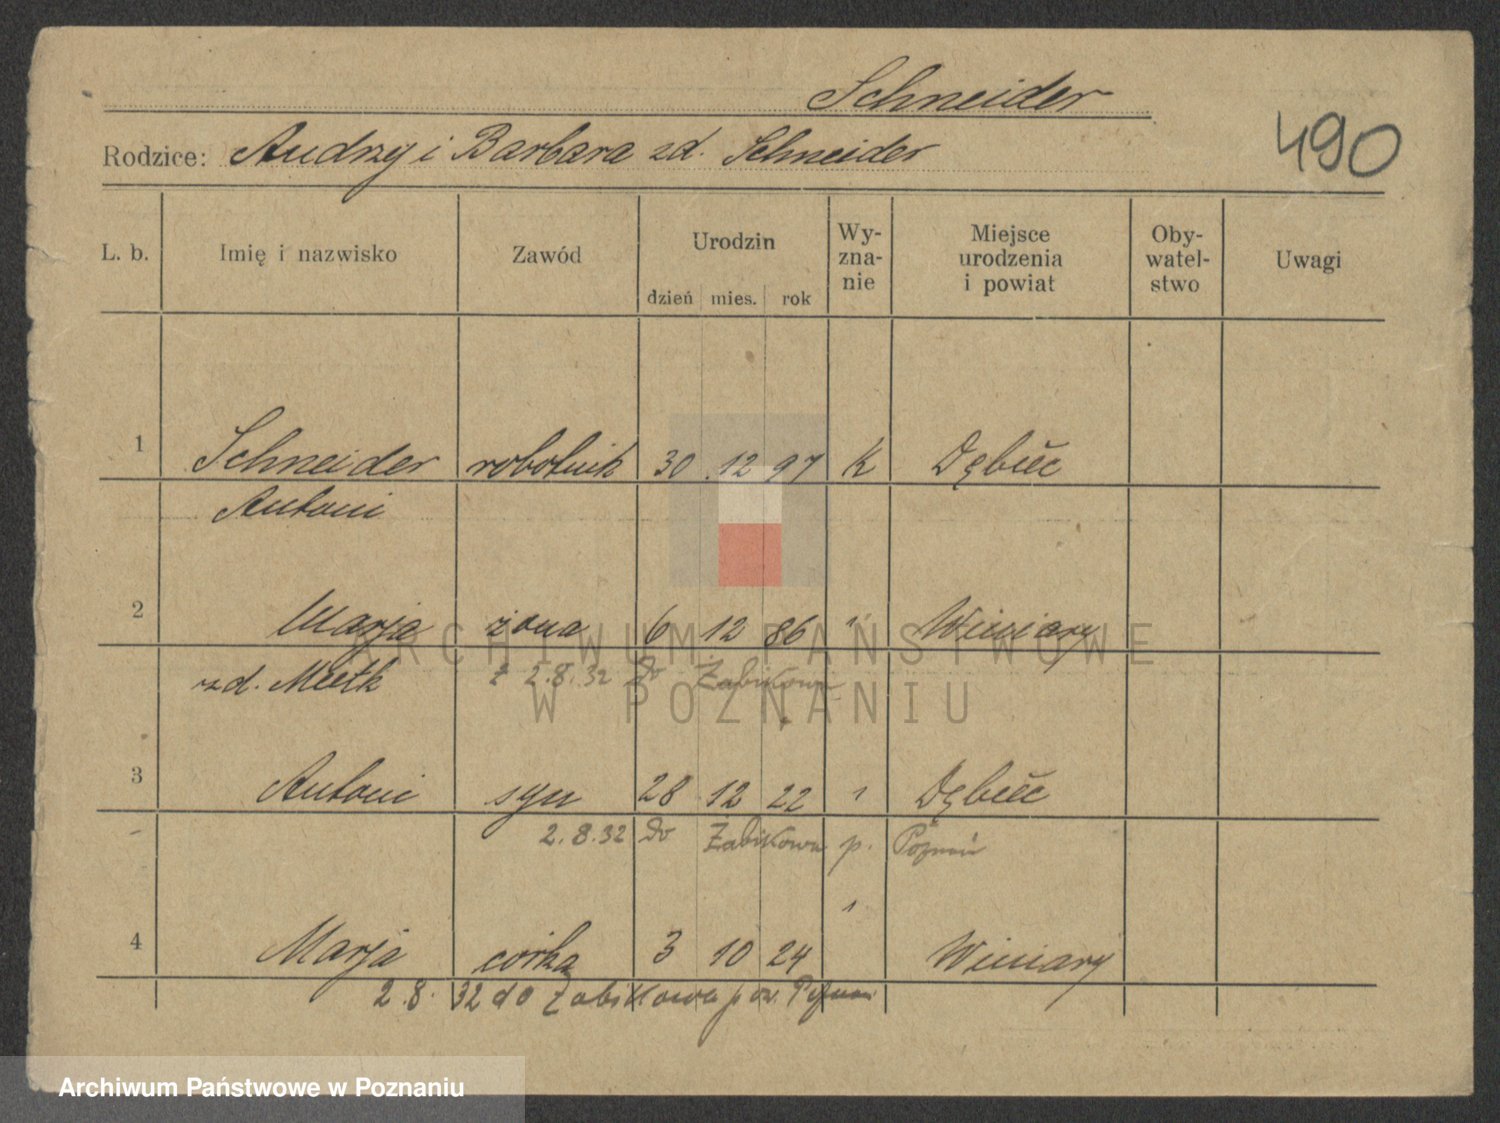 Schneider
490
Rodzice: Andrzej i Barbara zd. Schneider
L. b. Imię i nazwisko Zawód Urodzin dzień mies. rok Wy-zna-nie Miejsce urodzenia i powiat Oby-watel-stwo Uwagi
1 Schneider robotnik 30 12 97 K Dębiec
Antoni
2 Marja żona 6 12 86 " Winiary
zd. 2.8.32 do Żabikowa
ARCHIWUM PAŃSTWOWE
W POZNANIU
3 Antoni syn 28 12 22 " Dębiec
2.8.32 do Żabikowa p. Poznań
4 Marja córka 3 10 24 " Winiary
2.8.32 do Żabikowa pow. Poznań
Archiwum Państwowe w Poznaniu